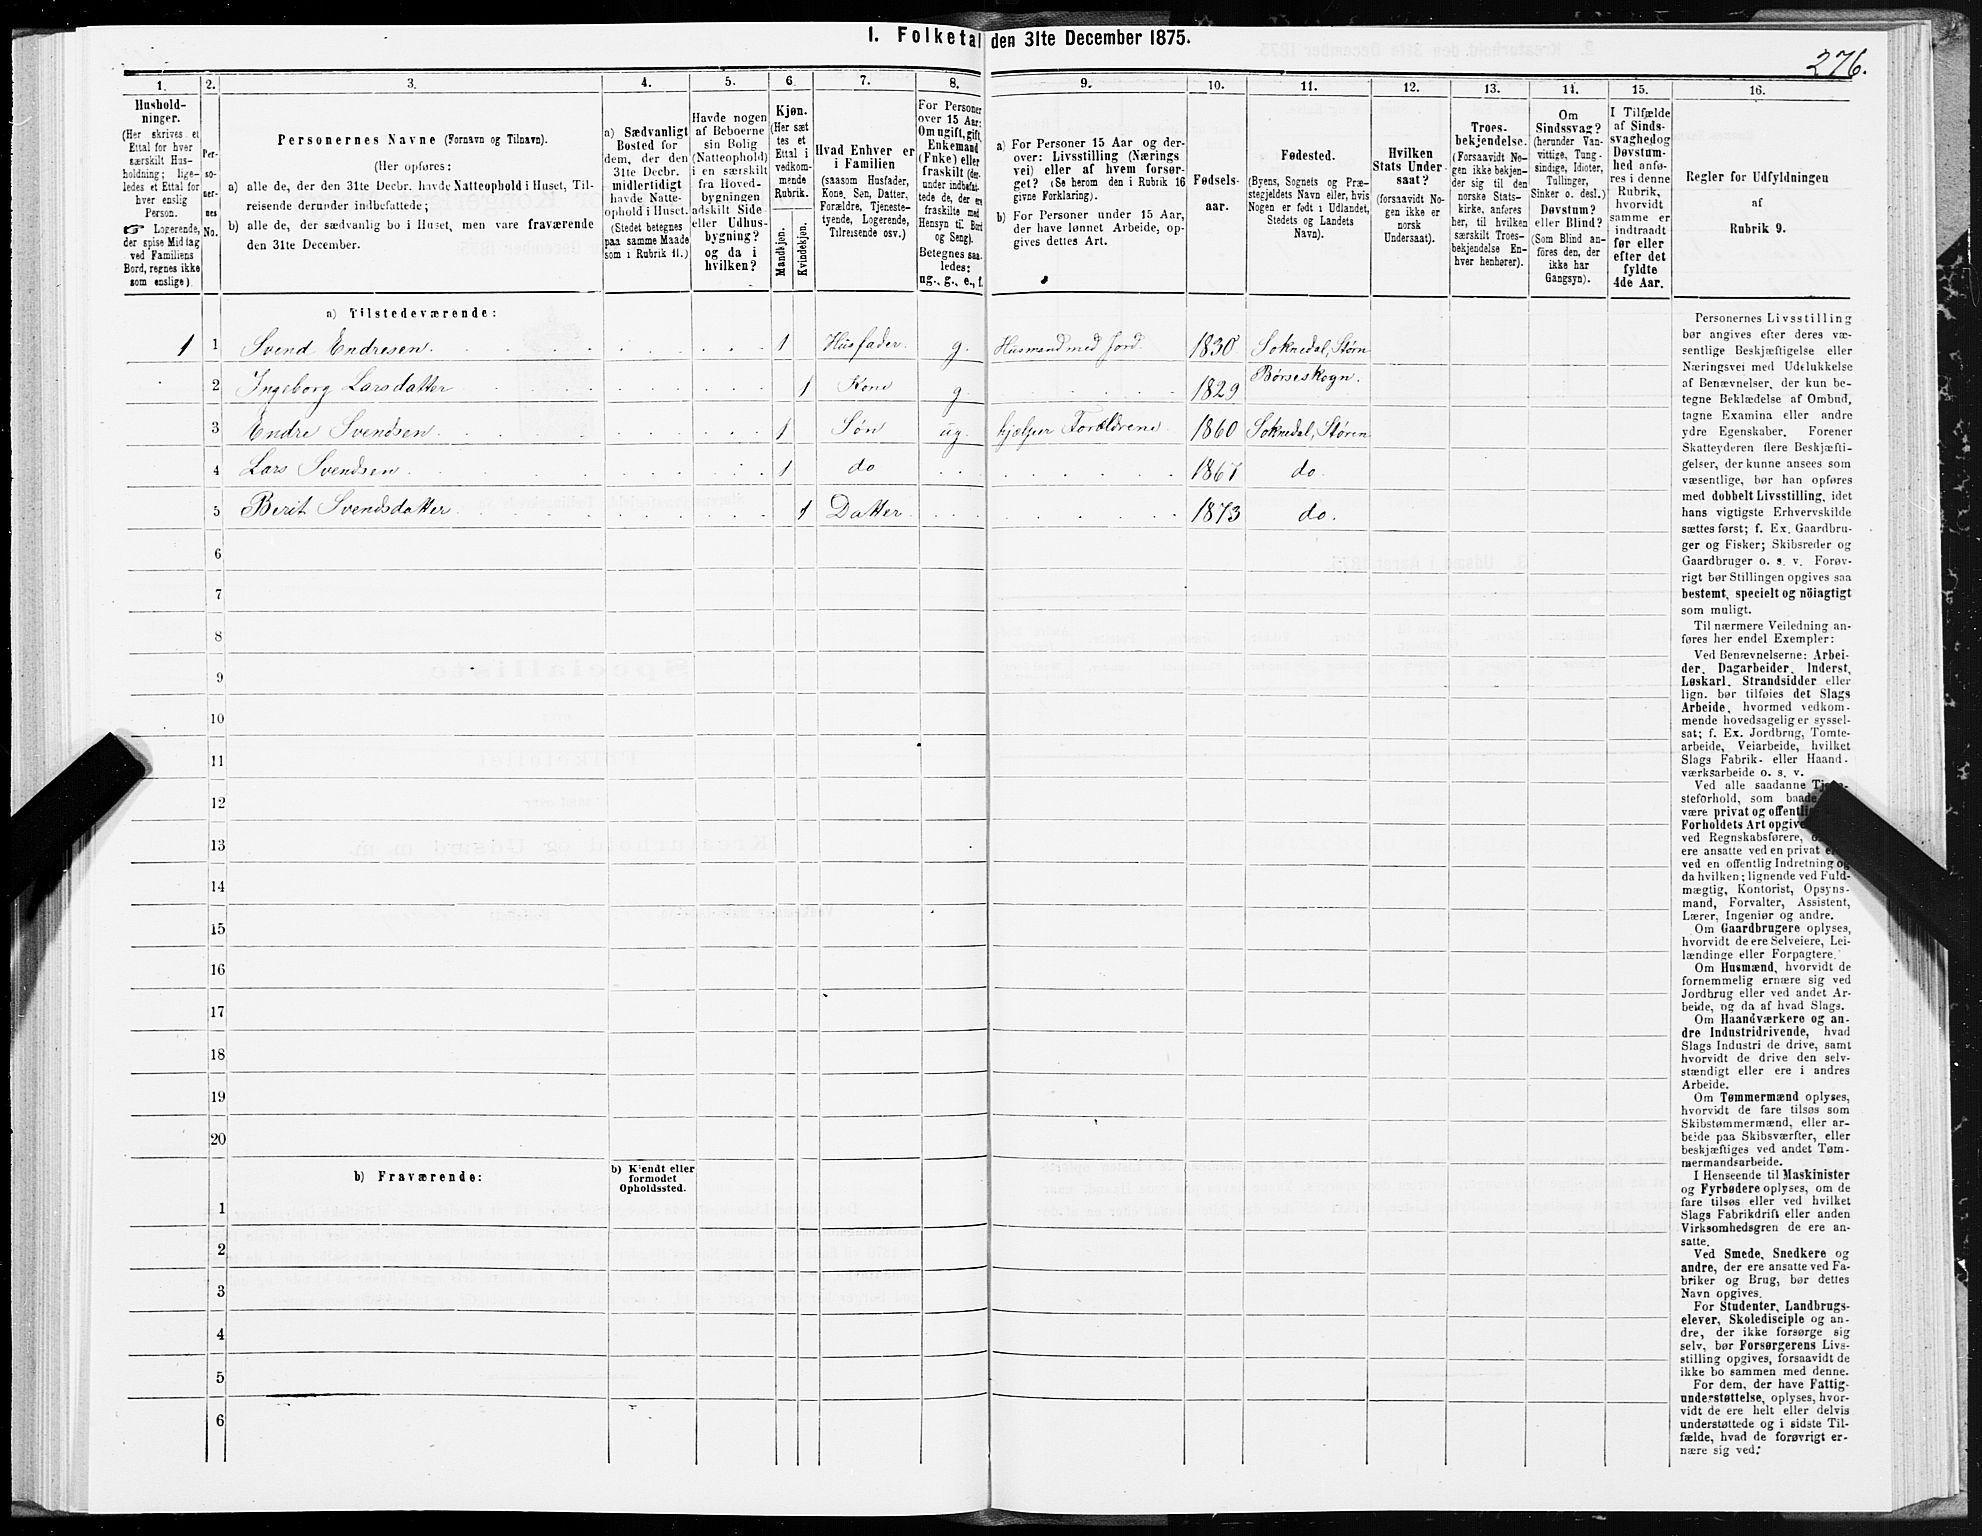 I. Folketal den 31te December 1875.
276.
1.
2.
3.
4.
5.
6.
7.
8.
9.
10.
11.
12.
13.
14.
15.
16.
Hushold-
ninger.
(Her skrives et
Ettal for hver
særskilt Hus-
holdning; lige-
ledes et Ettal for
hver enslig
Person.
☞ Logerende,
der spise Middag
ved Familiens
Bord, regnes ikke
som enslige).
Per-
so-
ner-
nes
No.
Personernes Navne (Fornavn og Tilnavn).
(Her opføres:
a) alle de, der den 31te Decbr. havde Natteophold i Huset, Til-
reisende derunder indbefattede;
b) alle de, der sædvanlig bo i Huset, men vare fraværende
den 31te December.
a) Sædvanligt
Bosted for
dem, der den
31te Decbr.
midlertidigt
havde Natte-
ophold i Huset.
(Stedet betegnes
paa samme Maade
som i Rubrik 11.)
Havde nogen
af Beboerne
sin Bolig
(Natteophold)
i en særskilt
fra Hoved-
bygningen
adskilt Side-
eller Udhus-
bygning?
og da i
hvilken?
Kjøn.
(Her sæt-
tes et
Ettal i
vedkom-
mende
Rubrik.
Mandkjøn.
Kvindekjøn.
Hvad Enhver er
i Familien
(saasom Husfader,
Kone, Søn, Datter,
Forældre, Tjeneste-
tyende, Logerende,
Tilreisende osv.)
For Personer
over 15 Aar:
Om ugift, gift,
Enkemand
(Enke) eller
fraskilt (der-
under indbefat-
tede de, der ere
fraskilte med
Hensyn til Bord
og Seng).
Betegnes saa-
ledes:
ug., g., e., f.
a) For Personer 15 Aar og der-
over: Livsstilling (Nærings
vei) eller af hvem forsør-
get? (Se herom den i Rubrik 16
givne Forklaring).
b) For Personer under 15 Aar,
der have lønnet Arbeide, op-
gives dettes Art.
Fødsels-
aar.
Fødested.
(Byens, Sognets og Præ-
stegjeldets Navn eller, hvis
Nogen er født i Udlandet,
Stedets og Landets
Navn).
Hvilken
Stats Under-
saat?
(forsaavidt No-
gen ikke er
norsk
Undersaat).
Troes-
bekjendelse.
(Forsaavidt No-
gen ikke bekjen-
der sig til den
norske Stats-
kirke, anføres
her, til hvilken
særskilt Troes-
bekjendelse En-
hver henhører).
Om
Sindssvag?
(herunder Van-
vittige, Tung-
sindige, Idioter,
Tullinger,
Sinker o. desl.)
Døvstum?
eller Blind?
(Som Blind an-
føres den, der
ikke har
Gangsyn).
I Tilfælde
af Sinds-
svaghed og
Døvstum-
hed anfø-
res i denne
Rubrik,
hvorvidt
samme er
indtraadt
før eller
efter det
fyldte
4de Aar.
Regler for Udfyldningen
af
Rubrik 9.
a) Tilstedeværende:
1 1 Svend Endresen. 1 Husfader. g. Husmand med Jord. 1830 Soknedal, Støren
2 Ingeborg Larsdatter 1 Kone g. 1829 Børseskogn.
3 Endre Svendsen. 1 Søn ug. hjelper Forældrene 1860 Soknedal, Støren
4 Lars Svendsen. 1 do 1867 do.
5 Berit Svendsdatter 1 Datter 1873 do.
6
7
8
9
10
11
12
13
14
15
16
17
18
19
20
b) Fraværende:
b) Kjendt eller
formodet
Opholdssted.
1
2
3
4
5
6
Personernes Livsstilling
bør angives efter deres væ-
sentlige Beskjæftigelse eller
Næringsvei med Udelukkelse
af Benævnelser, der kun be-
tegne Beklædelse af Ombud,
tagne Examina eller andre
ydre Egenskaber. Forener
Skatteyderen flere Beskjæfti-
gelser, der kunne ansees som
væsentlige, bør han opføres
med dobbelt Livsstilling, idet
hans vigtigste Erhvervskilde
sættes først; f. Ex. Gaardbru-
ger og Fisker; Skibsreder og
Gaardbruger o. s. v. Forøv-
rigt bør Stillingen opgives saa
bestemt, specielt og nöiagtigt
som muligt.
Til nærmere Veiledning an-
føres her endel Exempler:
Ved Benævnelserne: Arbei-
der, Dagarbeider, Inderst,
Løskarl, Strandsidder eller
lign. bør tilføies det Slags
Arbeide, hvormed vedkom-
mende hovedsagelig er syssel-
sat; f. Ex. Jordbrug, Tomte-
arbeide, Veiarbeide, hvilket
Slags Fabrik- eller Haand-
værksarbeide o. s. v.
Ved alle saadanne
steforhold, som
være privat og
Forholdets Art
ved Regnskabsførere,
ere ansatte ved en privat
ved en offentlig Indretning og
da hvilken; lignende ved Fuld-
mægtig, Kontorist, Opsyns-
mand, Forvalter, Assistent,
Lærer, Ingeniør og andre.
Om Gaardbrugere oplyses,
hvorvidt de ere Selveiere, Lei-
lændinge eller Forpagtere.
Om Husmænd, hvorvidt de
fornemmelig ernære sig ved
Jordbrug eller ved andet Ar-
beide, og da af hvad Slags.
Om Haandværkere og an-
dre Industridrivende, hvad
Slags Industri de drive, samt
hvorvidt de drive den selv-
stændigt eller ere i andres
Arbeide.
Om Tømmermænd oplyses,
hvorvidt de fare tilsøs som
Skibstømmermænd, eller ar-
beide paa Skibsværfter, eller
beskjæftiges ved andet Tøm-
mermandsarbeide.
I Henseende til Maskinister
og Fyrbødere oplyses, om de
fare tilsøs eller ved hvilket
Slags Fabrikdrift eller anden
Virksomhedsgren de ere an-
satte.
Ved Smede, Snedkere og
andre, der ere ansatte ved Fa-
briker og Brug, bør dettes
Navn opgives.
For Studenter, Landbrugs-
elever, Skoledisciple og an-
dre, der ikke forsørge sig
selv, bør Forsørgerens Livs-
stilling opgives, forsaavidt de
ikke bo sammen med denne.
For dem, der have Fattig-
understøttelse, oplyses, hvor-
vidt de ere helt eller delvis
understøttede og i sidste Til-
fælde, hvad de forøvrigt er-
nære sig ved.